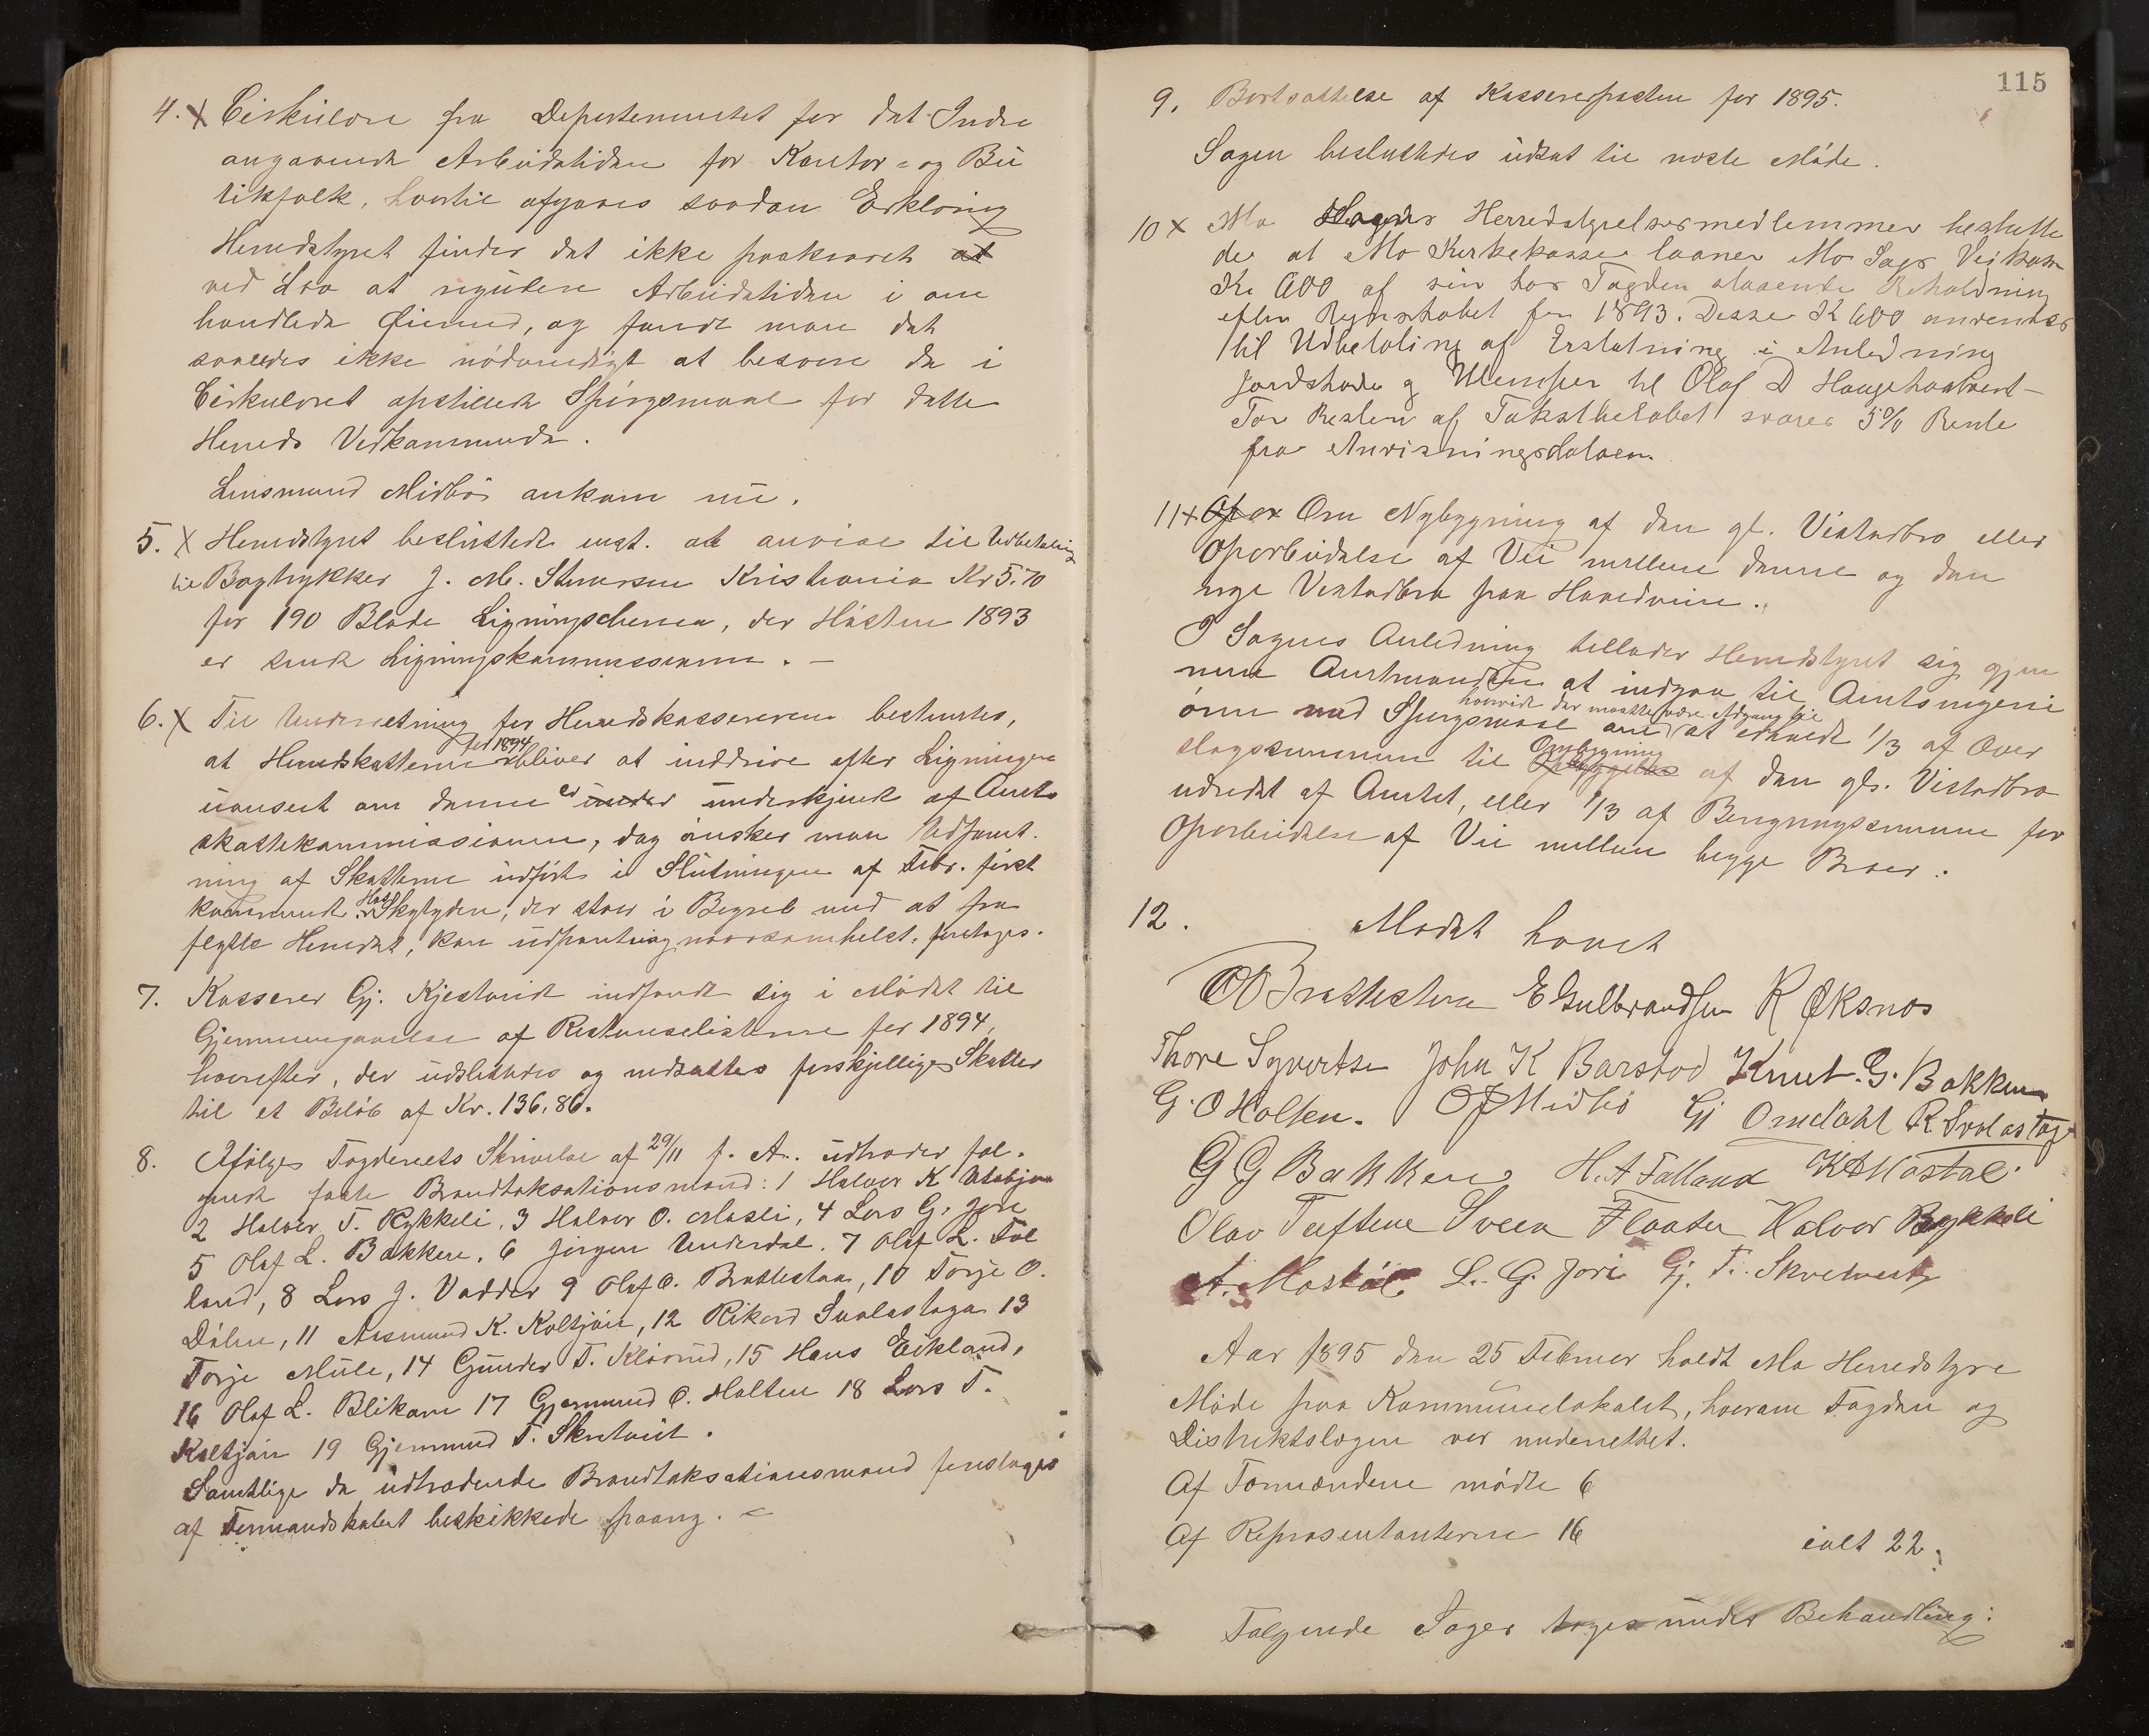 4. x Cirkulære fra Departementet for det Indre
angaaende Arbeidstiden for Kontor- og Bu
tikfolk, hvortil afgaves saadan Erklæring
Herredstyret finder det ikke paakrævet at
ved Lov at regulere Arbeidstiden i om
handlede Øiemed, og fandt man det
saaledes ikke nödvendigt at besvare de i
Cirkulæret opstillede Spörgsmaal for dette
Herreds Vedkommende.
Lensmand Midbö ankom nu.
5. x Herredstyret besluttede enst. at anvise til Udbetaling
til Bogtrykker J. M. Stenersen Kristiania Kr 5.70
for 190 Blade Ligningschema, der Hösten 1893
er sendt Ligningskommissionen. –
6. x Til Underretning for Herredskassereren bestemtes,
at Herredskatterne for 1894 bliver at inddrive efter Ligningen
uanseet om denne er under underkjendt af Amts
skattekommissionen, dog önsker man Udpant-
ning af Skatterne udfört i Slutningen af Febr. först
kommende. Hos Skyldyder, der staar i Begreb med at fra
flytte Herredet, kan udpantning naarsomhelst foretages.
7. Kasserer Gj. Kjestveit indfandt sig i Mödet til
Gjennemgaaelse af Restanselisterne for 1894,
hvorefter, der udslettedes og udsattes forskjellige Skatter
til et Belöb af Kr. 136,86.
8. Ifölge Fogderiets Skrivelse af 29/11 f. A. udtræder föl-
gende faste Brandtaksationsmænd: 1 Halvor K Utebjoen
2 Halvor T. Rykkeli, 3 Halvor O. Masli, 4 Lars G. Jore
5 Olaf L. Bakken, 6 Jörgen Underdal. 7 Olaf L. Fal
land, 8 Lars J. Vadder 9 Olaf O. Brattestaa, 10 Torje O.
Dölen, 11 Aasmund K. Koltjön, 12 Rikard Svalastoga 13
Torje Mule, 14 Gunder T. Klovrud, 15 Hans Eikland,
16 Olaf L. Blikom 17 Gjermund O. Holten 18 Lars T.
Koltjön 19 Gjermund T. Skretveit.
Samtlige de udtrædende Brandtaksationsmænd foreslages
af Formandskabet beskikkede paany. –
115
9. Bortsættelse af Kassererposten for 1895.
Sagen besluttedes udsat til næste Möde.
10 x Mo Sogns Herredstyrelsesmedlemmer beslutte
de at Mo Kirkekasse laaner Mo Sogs Veikasse
Kr 600 af sin hos Fogden staaende Beholdning
efter Regnskabet for 1893. Disse K 600 anvendes
til Udbetaling af Erstatning i Anledning
Jordskade og Ulemper til Olaf D Haugehaatveit –
For Resten af Takstbelöbet svares 5% Rente
fra Anvisningsdatoen.
11 x Om Nybygning af den gl. Vistadbro eller
Oparbeidelse af Vei mellem denne og den
nye Vistadbro paa Hovedveien.
I Sagens Anledning tillader Herredstyret sig gjen
nem Amtmanden at indgaa til Amtsingeni
ören med Spørgsmaal om hvorvidt der maatte være Adgang til at erholde 1/3 af Over
slagssummen til Ombygning af den gle. Vistadbro
udredet af Amtet, eller 1/3 af Beregningssummen for
Oparbeidelse af Vei mellem begge Broer.
12. Mödet hævet
O O Brattestaa E Gulbrandsen K Øksnos
Thore Syvertsen John K Barstad Knut. G. Bakken
G. O Holten. O J Midbö Gj Omdahl R. Svalastoge
G G Bakken H. A Falland K A Mostøl
Olav Tveften Svein Flaata Halvor Rykkeli
A. Mostöl. L. G. Jore Gj. T. Skretveit
Aar 1895 den 25 Februar holdt Mo Herredstyre
Möde paa Kommunelokalet, hvorom Fogden og
Distriktslægen var underrettet.
Af Formændene mödte 6
Af Repræsentanterne 16 ialt 22.
Følgende Sager toges under Behandling: